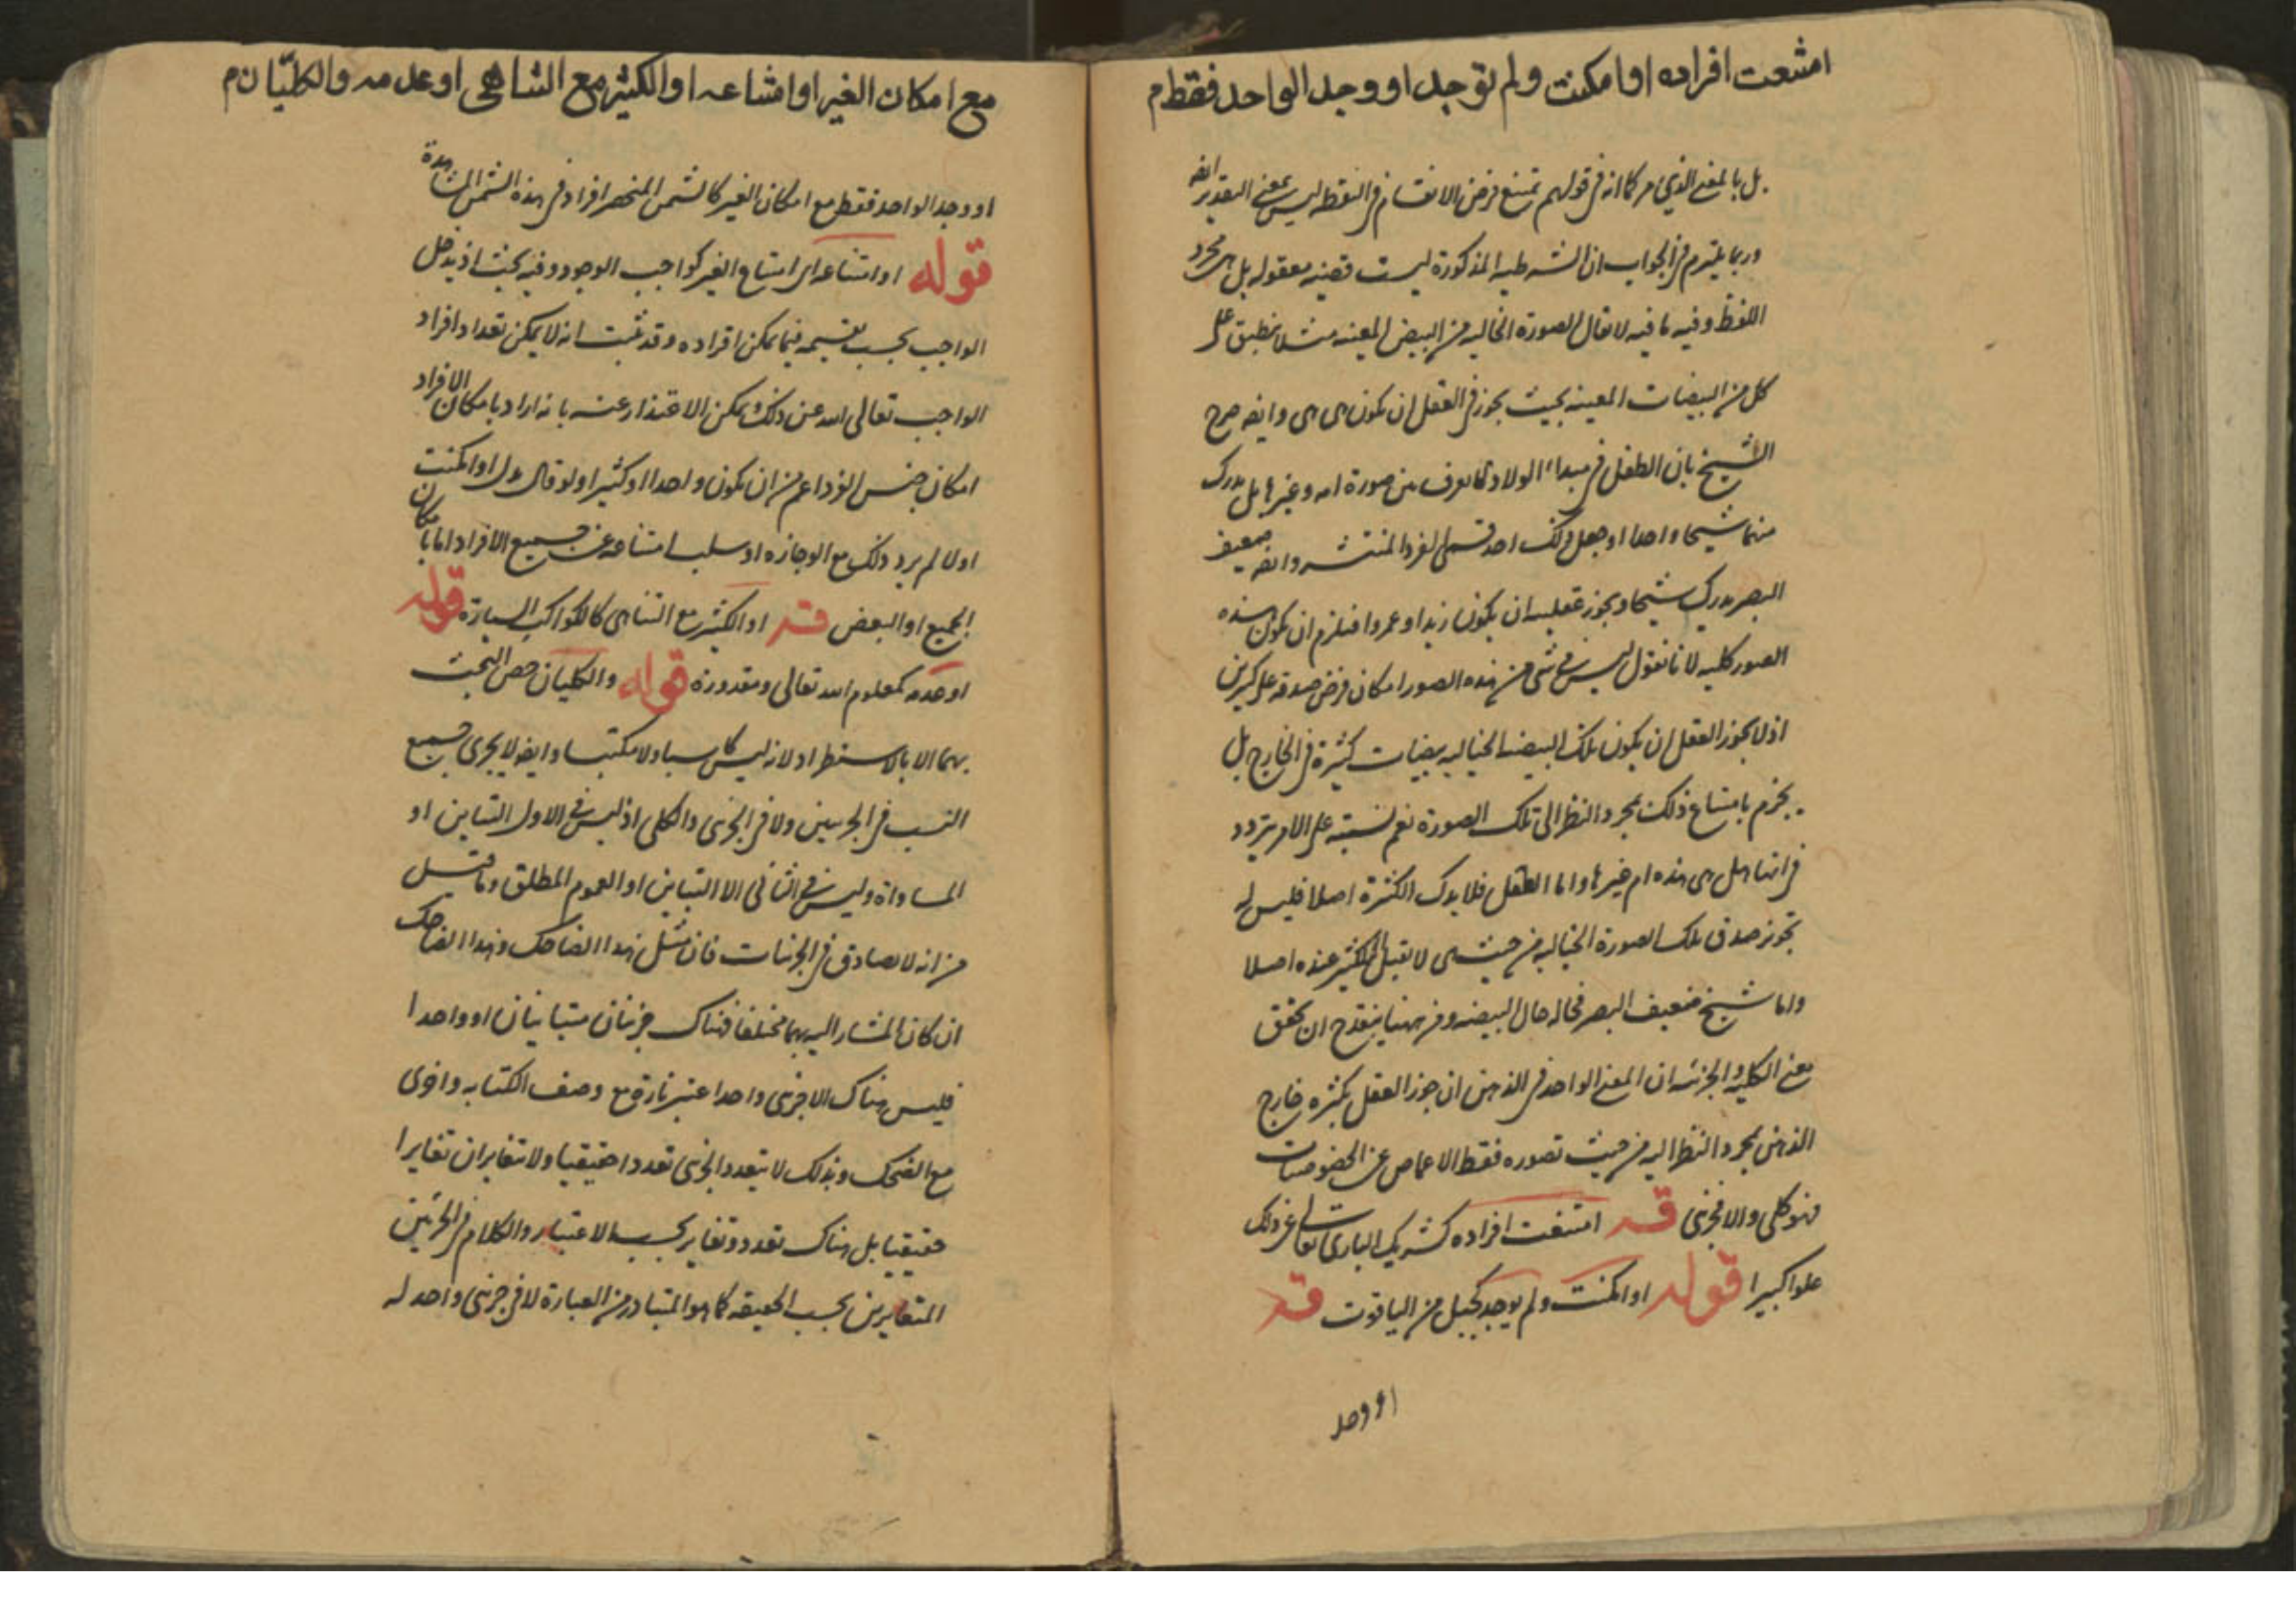 امتنعت افراده او امكنت ولم توجد او وجد الواحد فقط م
بل بالمعنى الذي مر كما انه في قولهم يمتنع فرض الانقسام في النقطه ليس بمعنى التقدير ايضا
وربما يلتزم في الجواب ان الشرطيه المذكورة ليست قضيه معقوله بل هي مجرد
اللفظ وفيه ما فيه لا يقال الصورة الخياليه من البيض المعينه مثلا ينطبق على
كل من البيضات المعينه بحيث يجوز في العقل ان يكون هي هي وايضا صرح
الشيخ بان الطفل في مبداء الولادة لا يعرف بين صورة امه وغيرها بل يدرك
منهما شبحا واحدا وجعل ذلك احد قسمي الفرد المنتشر وايضا ضعيف
البصر يدرك شبحا ويجوز عقله ان يكون زيدا او عمروا فيلزم ان يكون هذه
الصور كليه لانا نقول ليس في شي من هذه الصور امكان فرض صدقه على كثيرين
اذ لا يجوز العقل ان يكون تلك البيضه الخياليه بيضات كثيرة في الخارج بل
يجزم بامتناع ذلك بمجرد النظر الى تلك الصورة نعم يشتبه عليه الامر يتردد
في انها هل هي هذه ام غيرها واما الطفل فلا يدرك الكثرة اصلا فليس له
تجويز صدق تلك الصورة الخياليه من حيث هي لا تقبل التكثير عنده اصلا
واما شيخ ضعيف البصر فحاله حال البيضه ومن ههنا ينقدح ان تحقق
معنى الكليه والجزئيه ان المعنى الواحد في الذهن ان جوز العقل بكثره خارج
الذهن بمجرد النظر اليه من حيث تصوره فقط الاغماض عن الخصوصيات
فهو كلي والا فجزئي قـه امتنعت افراده كشريك الباري تعالى عن ذلك
علوا كبيرا قوله او امكنت ولم يوجد كجبل من الياقوت قـه
او وجد
مع امكان الغير او امتناعه او الكثير مع التناهي او عدمه والكليّان م
او وجد الواحد فقط مع امكان الغير كالشمس المنحصر افراد في هذه الشمس المشاهدة
قوله او امتناعه اي امتناع الغير كواجب الوجود وفيه بحث اذ يدخل
الواجب بحسب تقسيمه فيما يمكن افراده وقد ثبت انه لا يمكن تعداد افراد
الواجب تعالى الله عن ذلك ويمكن الاعتذار عنه بانه اراد بامكان الافراد
امكان جنس الفرد اعم من ان يكون واحدا او كثيرا ولو قال بدل او امكنت
اولا لم يرد ذلك مع الوجازه او سلب امتناعه عن جميع الافراد اما بامكان
الجميع او البعض قـه او الكثير مع التناهي كالكواكب السيارة قوله
او عدمه كمعلوم الله تعالى ومقدوره قوله والكليان خص البحث
بهما الا بالاستطراد لانه ليس كاسبا ولا مكتسبا وايضا لا يجري جميع
النسب في الجزئيين ولا في الجزئي والكلي اذ ليس في الاول التباين او
المساواة وليس في الثاني الا التباين او العموم المطلق وما قيل
من انه لا تصادق في الجزئيات فان مثل هذا الضاحك وهذا الضاحك
ان كان المشار اليه بهما مختلفا فهناك جزئيان متباينان او واحدا
فليس هناك الا جزئي واحد اعتبر تارة مع وصف الكتابه واخرى
مع الضحك وبذلك لا يتعدد الجزئي تعددا حقيقيا ولا يتغايران تغايرا
حقيقيا بل هناك تعدد وتغاير بحسب الاعتبار والكلام في الجزئين
المتغايرين بحسب الحقيقه كما هو المتبادر من العبارة لا في جزئي واحد له